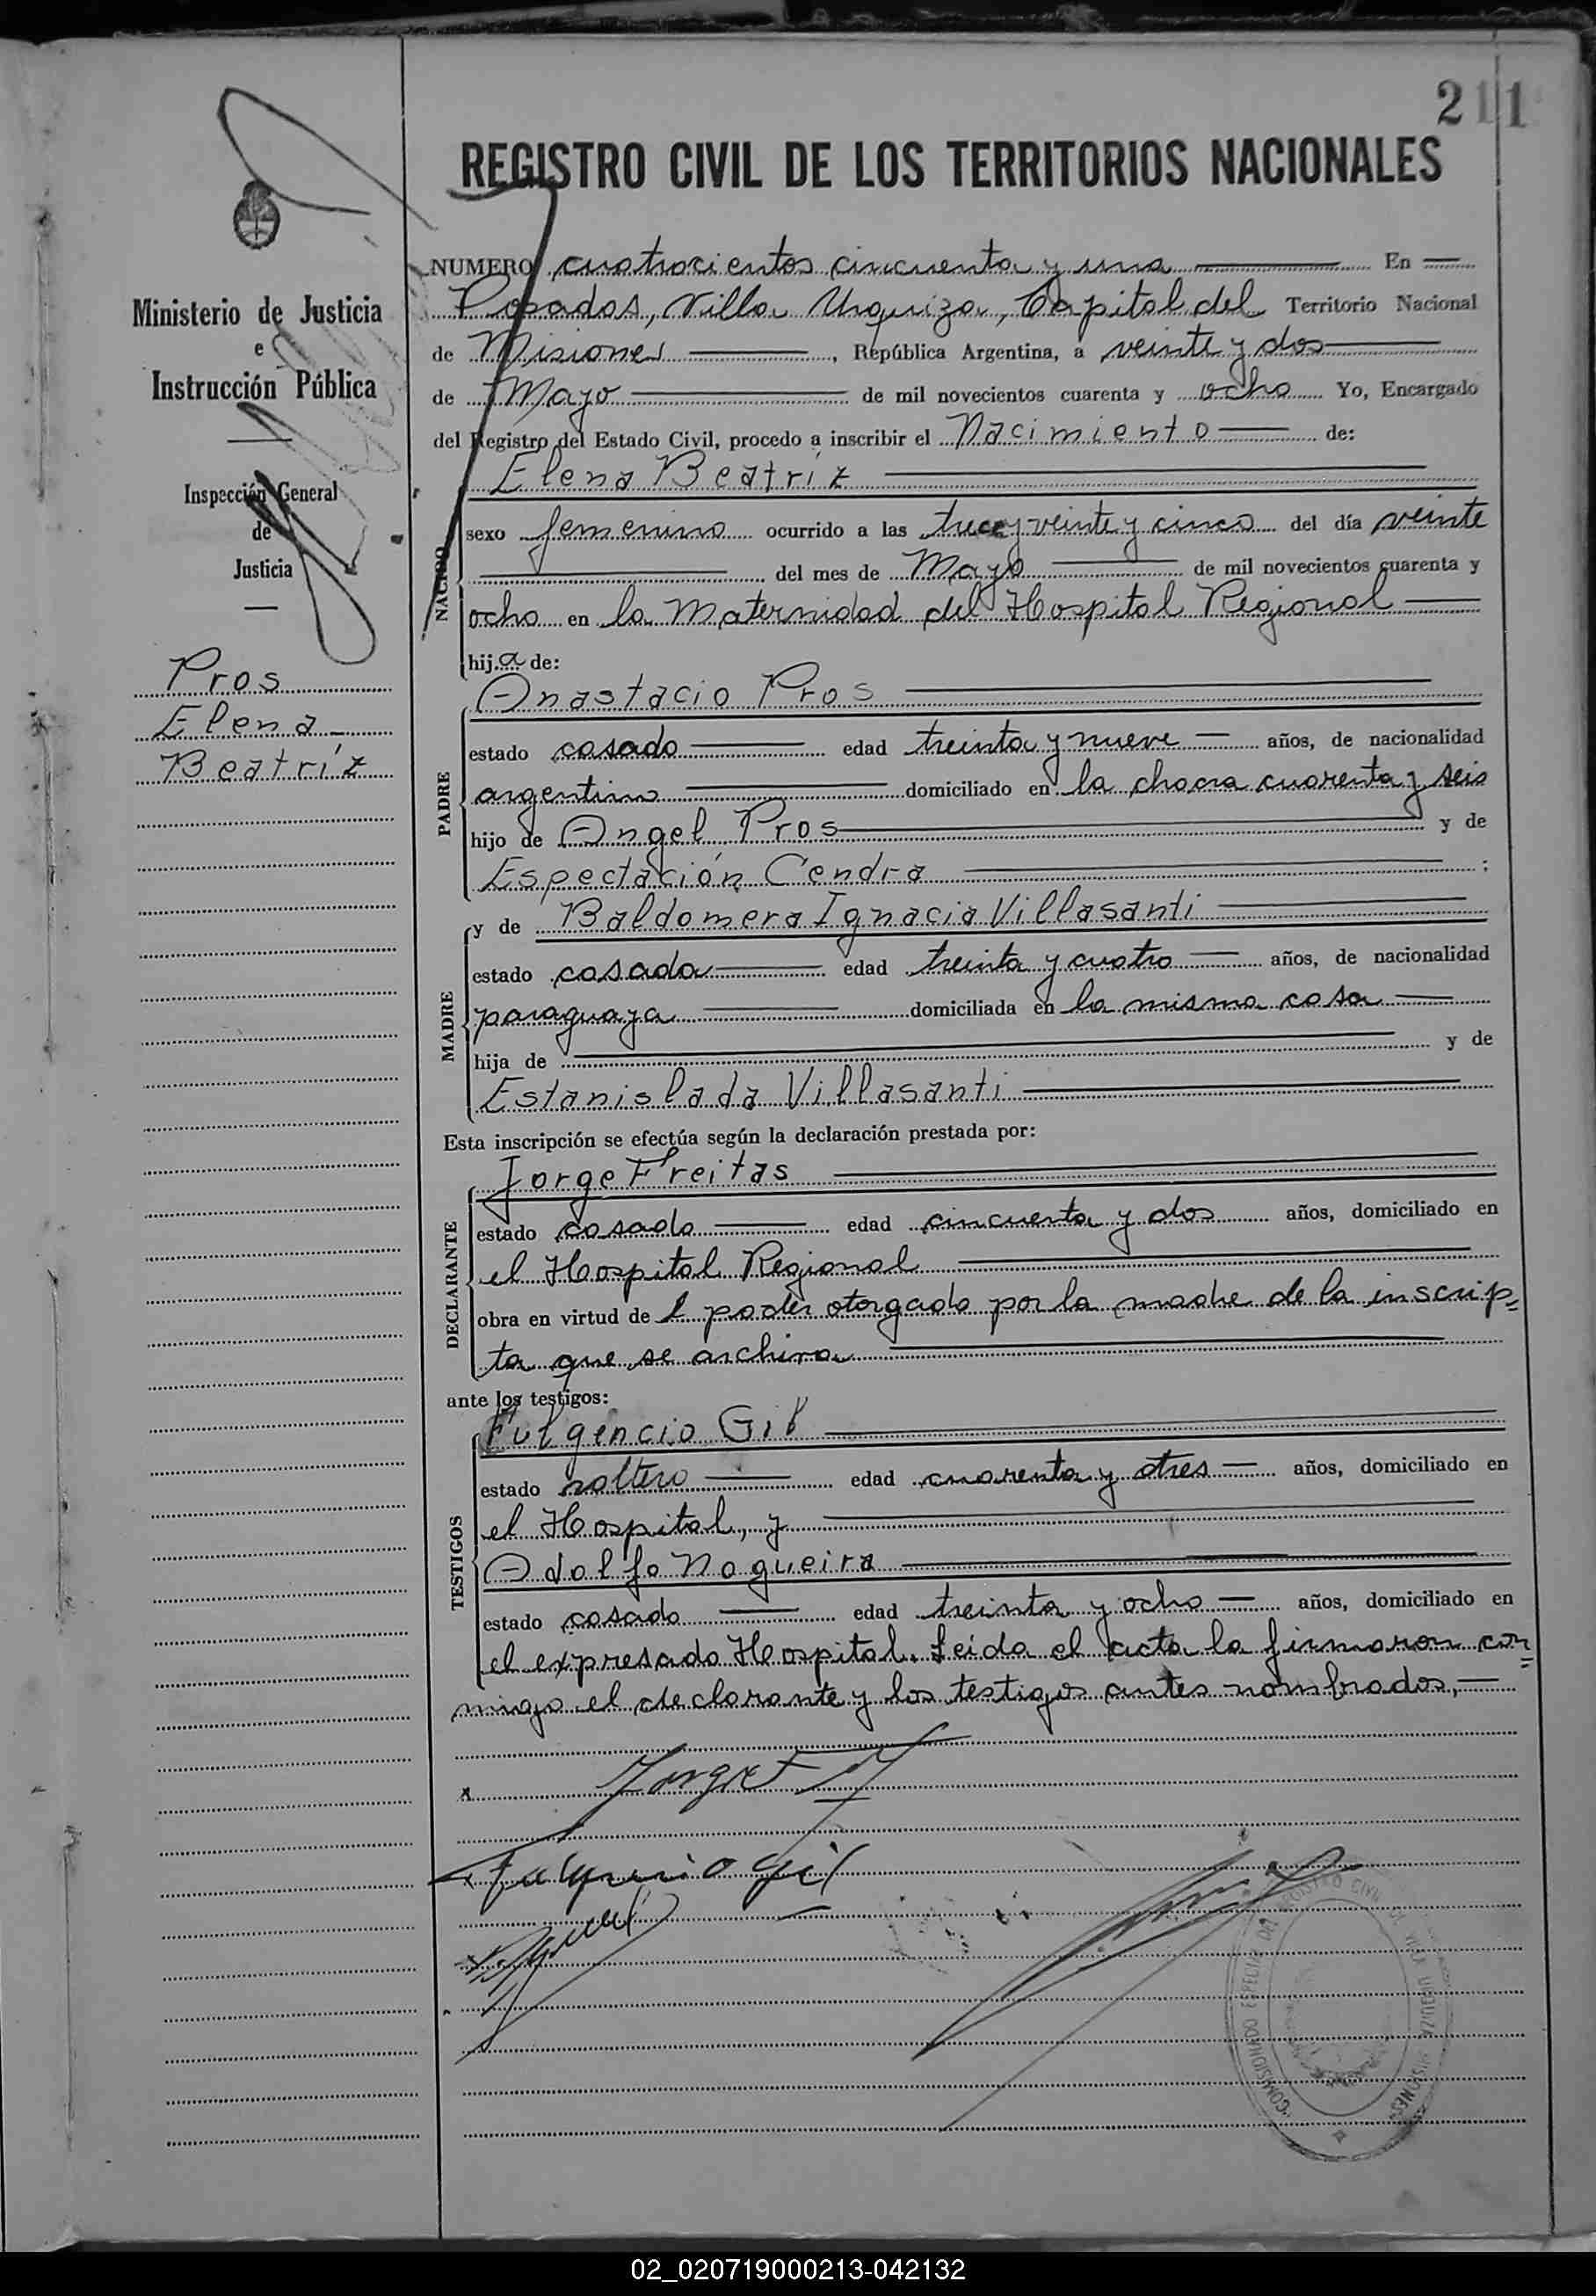 211
REGISTRO CIVIL DE LOS TERRITORIOS NACIONALES
Ministerio de Justicia
e
Instrucción Pública
Inspección General
de
Justicia
Pros
Elena
Beatríz
NUMERO cuatrocientos cincuenta y una En
Posadas, Villa Urquiza, Capital del Territorio Nacional
de Misiones, República Argentina, a veinte y dos
de Mayo de mil novecientos cuarenta y ocho Yo, Encargado
del Registro del Estado Civil, procedo a inscribir el Nacimiento de:
Elena Beatríz
NACIDO
sexo femenino ocurrido a las trece y veinte y cinco del día veinte
del mes de Mayo de mil novecientos cuarenta y
ocho en la Maternidad del Hospital Regional
hij.a de:
Anastacio Pros
PADRE
estado casado edad treinta y nueve años, de nacionalidad
argentino domiciliado en la chacra cuarenta y seis
hijo de Angel Pros y de
Espectación Cendra ;
y de Baldomera Ignacia Villasanti
MADRE
estado casada edad treinta y cuatro años, de nacionalidad
paraguaya domiciliada en la misma casa
hija de y de
Estanislada Villasanti
Esta inscripción se efectúa según la declaración prestada por:
Jorge Freitas
DECLARANTE
estado casado edad cincuenta y dos años, domiciliado en
el Hospital Regional
obra en virtud de l poder otorgado por la madre de la inscrip=
ta que se archiva
ante los testigos:
Fulgencio Gil
TESTIGOS
estado soltero edad cuarenta y tres años, domiciliado en
el Hospital, y
Adolfo Nogueira
estado casado edad treinta y ocho años, domiciliado en
el expresado Hospital. Leida el acta la firmaron con=
migo el declarante y los testigos antes nombrados.
x
x Fulgencio Gil
COMISIONADO ESPECIAL DEL REGISTRO CIVIL VILLA URQUIZA MISIONES
02_020719000213-042132